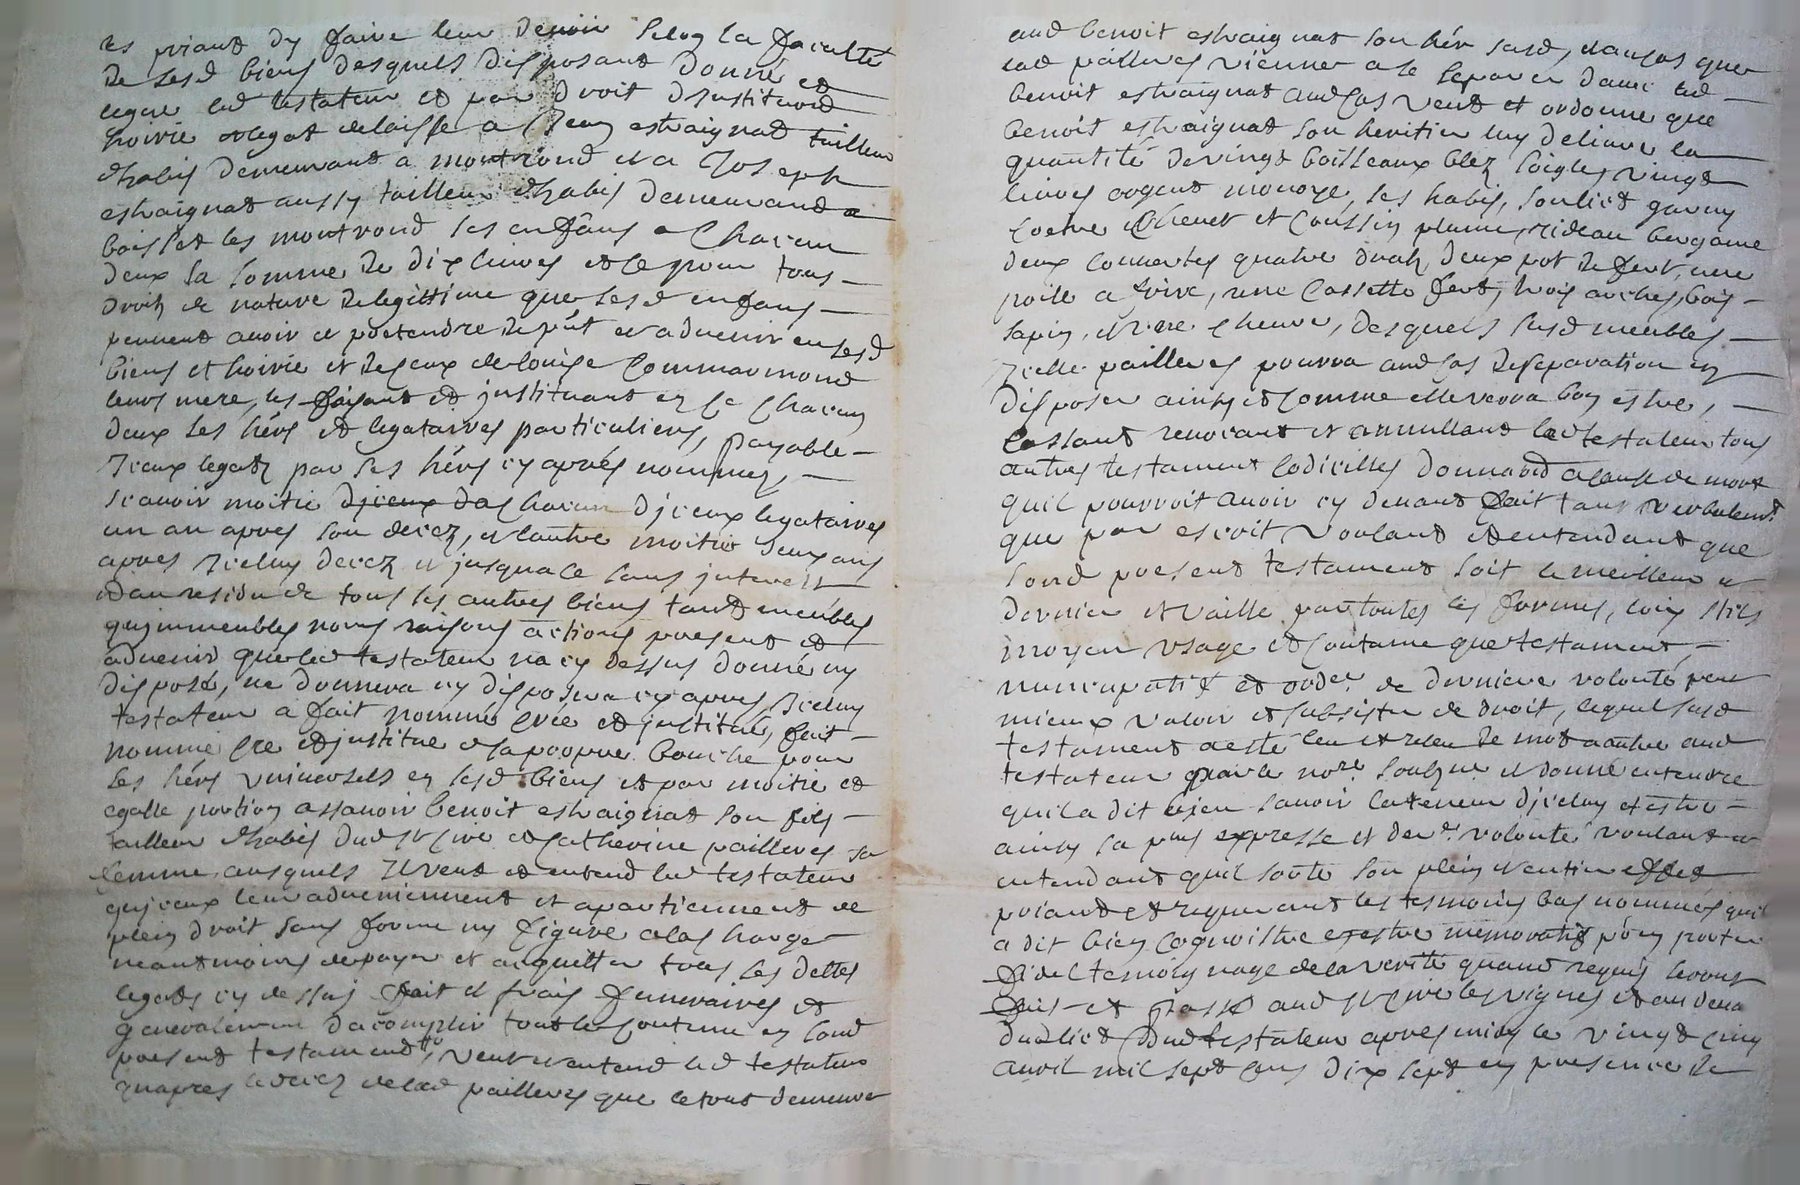 les priant dy faire leur devoir selon la faculté
de sesd biens desquels disposant donne et
legue led testateur et par droit djnstituond
hoirie et legat delaisse a Jean estraignat tailleur
dhabis demeurant a montrond et a Joseph
estraignat aussy tailleur dhabis demeurand a
boisset les montrond ses enfans a Chacun
deux la somme de dix livres et ce pour tous
droitz de nature de legittime que sesd enfans
peuvent avoir et pretendre de pnt et advenir en sesd
biens et hoirie et de ceux de louise Commarmond
leurs mere, les faisant et jnstituant en ce Chacun
deux ses hers et legataires particuliers, payable
Jceux legatz par ses hers cy apres nommez,
scavoir moitie djceux legataires
un an apres son decez, et lautre moitié deux ans
apres Jceluy decez et jusqua ce sans jnterest
et au residu de tous les autres biens tant meubles
qujmmeubles noms raisons actions present et
advenir que led testateur na cy dessus donné ny
disposé, ne donnera ny disposera cy apres, Jceluy
testateur a fait nommé cree et jnstitué, fait
nomme cree et jnstitue de sa propre bouche pour
ses hers universels en sesd biens et par moitie et
egalle portion assavoir benoit estraignat son fils
tailleur dhabis dud st Cire et Catherine pailleres sa
femme, ausquels Jl veut et entend led testateur
qujceux leur adveniennent et apartiennent de
plein droit sans forme ny figure a la Charge
neantmoins de payer et acquitter tous ses dettes
legats cy dessus fait et frais funeraires et
generalement dacomplir tout le Contenu en sond
present testament, veut et entend led testateur
quapres le decez de lad pailleres que le tout demeure
aud benoit estraignat son her susd, et au cas que
lad pailleres vienne a se separer davec led
benoit estraignat aud Cas veut et ordonne que
benoit estraignat son heritier luy delivre la
quantité de vingt boisseaux blez soigle, vingt
livres argent monoye, ses habis, son lict garny
Coetre Chevet et Coussin plume, rideau bergame
deux Couvertes quatre dratz, deux pot de fert, une
poile a frire, une Cassette fert, trois arches bois
sapin, desquels susd meubles
Jcelle pailleres pourra aud cas de separation en
disposer ainsy et Comme elle verra bon estre,
Cassant revocant et annullant led testateur tous
autres testament Codicilles donnaond a cause de mort
quil pourroit avoir cy devant fait tant verbalemt
que par escrit voulant et entendant que
sond present testament soit le meilleur et
dernier et vaille par toutes les formes, loix stils
moyen usage et Coutume que testament,
nuncupatif et ordce de derniere volonté peut
mieux valoir et subsister de droit, lequel susd
testament a esté leu et releu de mot a autre aud
testateur par le nore soubzne et donné entendre
quil a dit bien savoir la teneur djceluy et estre
ainsy sa pure expresse et dere volonté voulant et
entendant quil sorte son plein et entier effet
priant et requerant les tesmoins bas nommés quil
a dit bien Cognoistre et estre memoratif pr en porter
fidel tesmoignage de la verité quand requis seront
fait et passé aud st Cire les vignes et au deva
du lict dud testateur apres midy le vingt cinq
avril mil sept cens dix sept en presence de